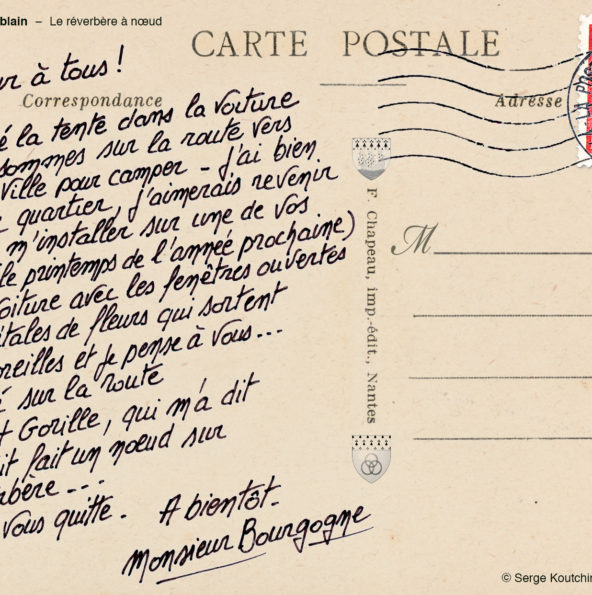 blain – Le réverbère à nœud
CARTE POSTALE
Correspondance
Adresse
r à tous !
é la tente dans la voiture
sommes sur la route vers
ville pour camper - J'ai bien
quartier, j'aimerais revenir
m'installer sur une de vos
le printemps de l'année prochaine)
oiture avec les fenêtres ouvertes
tales de fleurs qui sortent
oreilles et je pense à vous...
sur la route
t Gorille, qui m'a dit
it fait un nœud sur
bère...
vous quitte. A bientôt.
Monsieur Bourgogne
F. Chapeau, imp.-édit., Nantes
M
LA
© Serge Koutchin